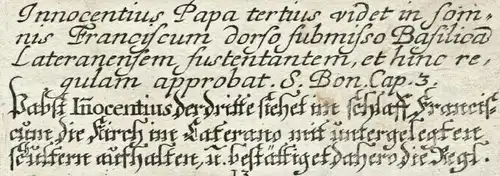 Innocentius Papa tertius videt in som-
nis Franciscum dorso submisso Basilicā
Lateranensem sustentantem, et hinc re-
gulam approbat. S. Bon. Cap. 3.
Pabst Iñocentius der dritte siehet im schlaff, Francis-
cum die Kirch im Laterano mit untergelegten
schultern aufhalten, ū. bestättiget dahero die Regl.
13